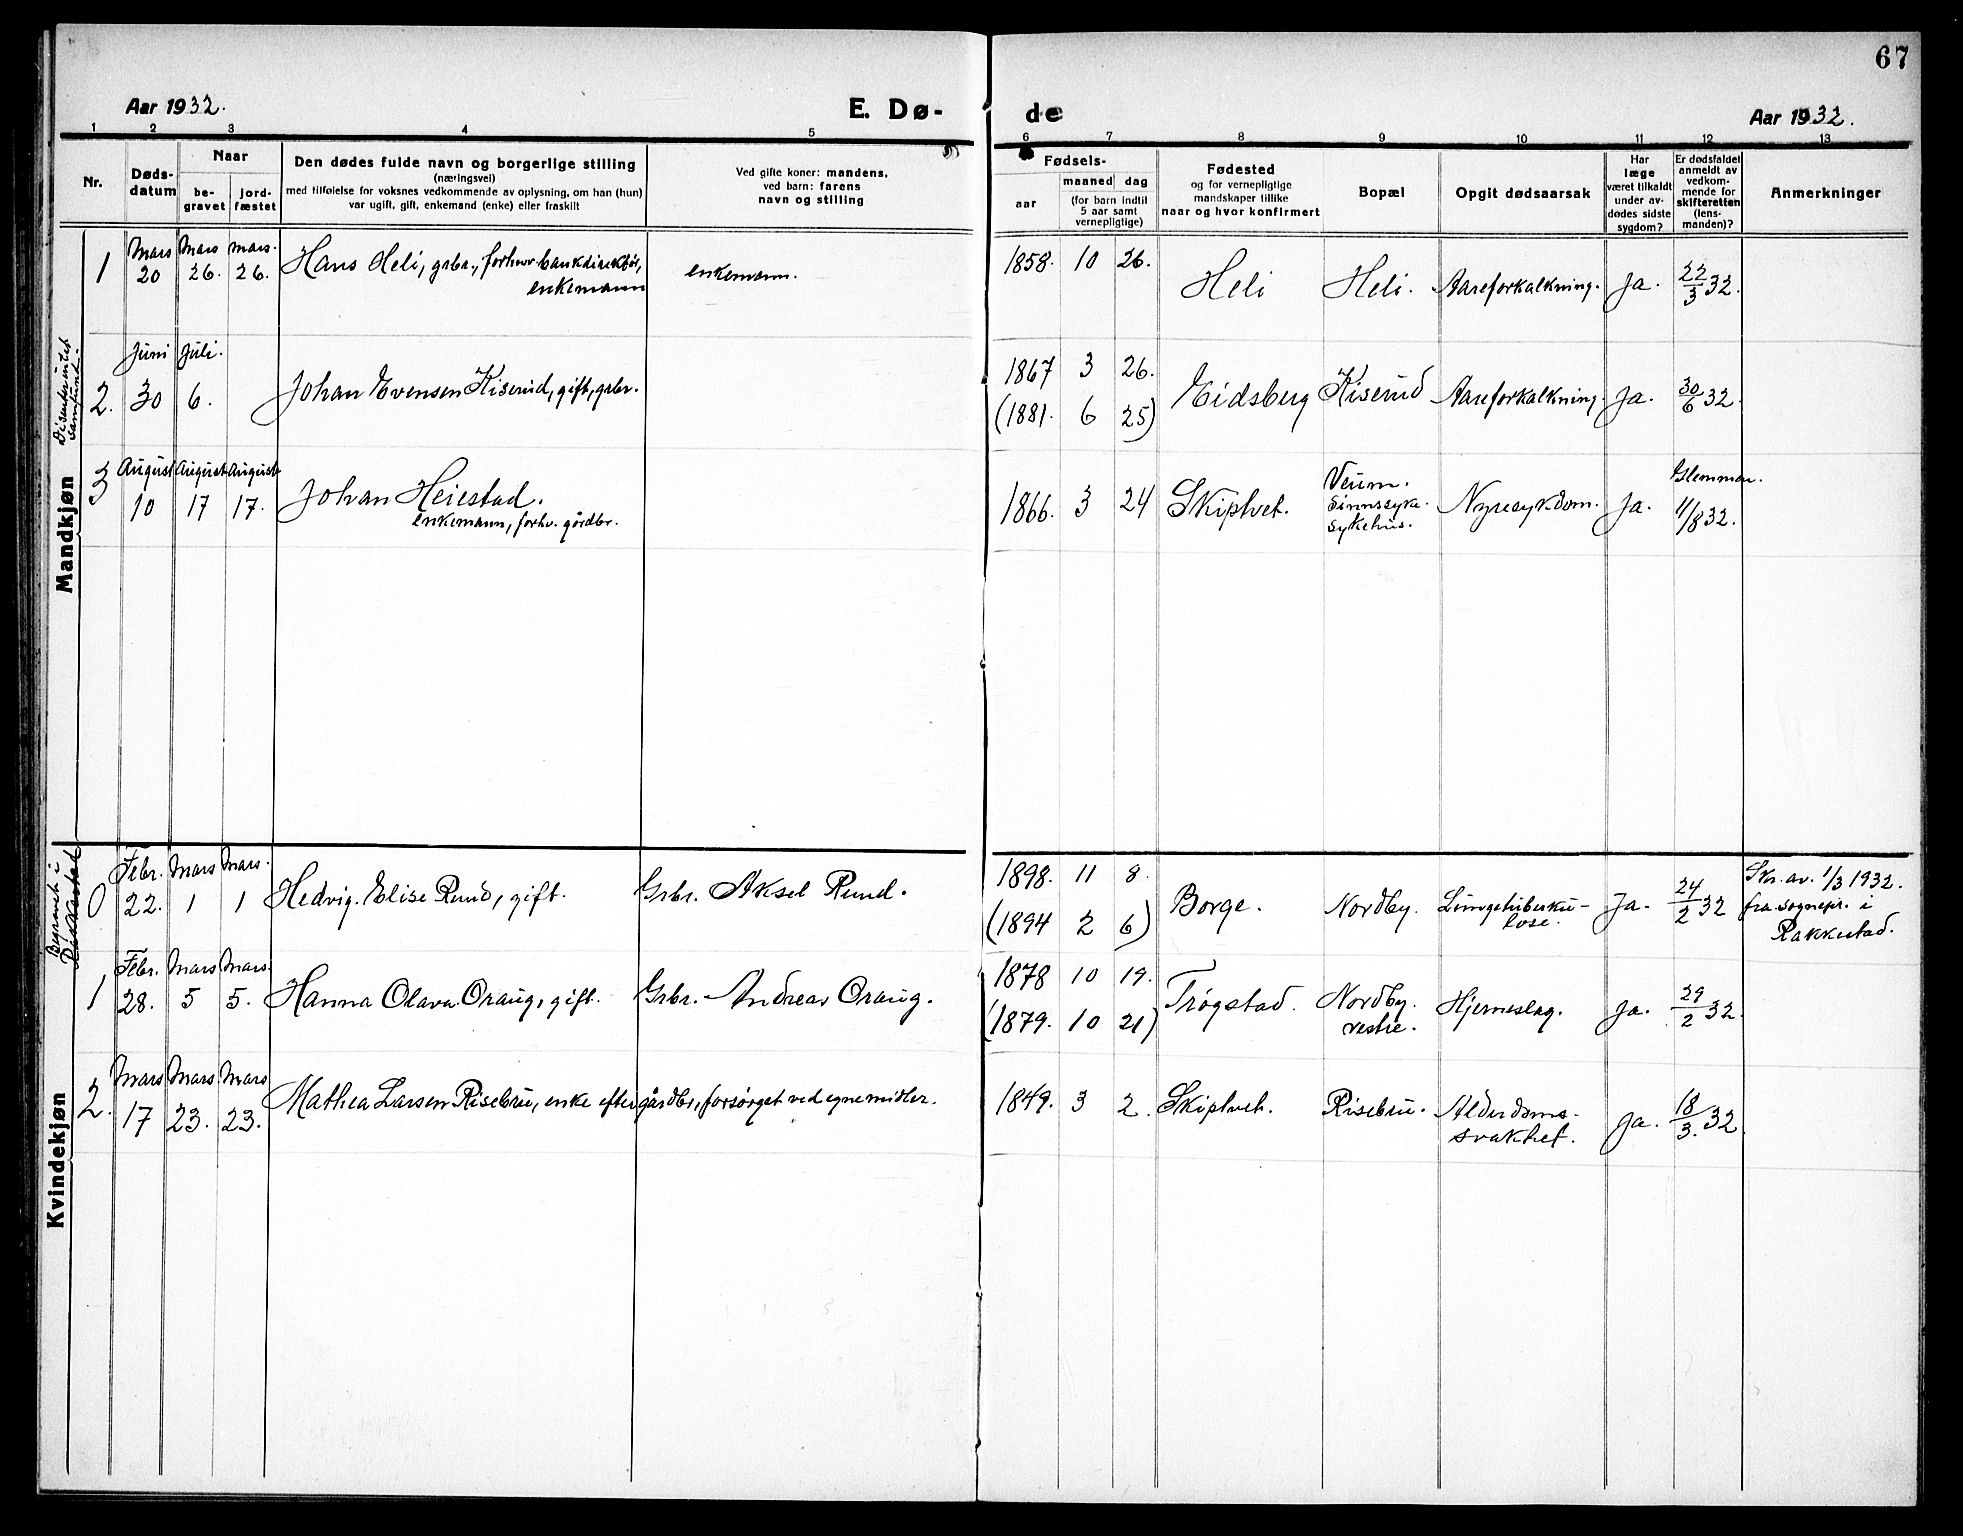 67
Aar 1932.
E. Dø-
de
Aar 1932.
1 2 3 4 5 6 7 8 9 10 11 12 13
Nr.
Døds-
datum
Naar
be-
gravet
jord-
fæstet
Den dødes fulde navn og borgerlige stilling
(næringsvei)
med tilføielse for voksnes vedkommende av oplysning, om han (hun)
var ugift, gift, enkemand (enke) eller fraskilt
Ved gifte koner: mandens,
ved barn: farens
navn og stilling
Fødsels-
aar
maaned dag
(for barn indtil
5 aar samt
vernepligtige)
Fødested
og for vernepligtige
mandskaper tillike
naar og hvor konfirmert
Bopæl
Opgit dødsaarsak
Har
læge
været tilkaldt
under av-
dødes sidste
sygdom?
Er dødsfaldet
anmeldt av
vedkom-
mende for
skifteretten
(lens-
manden)?
Anmerkninger
Mandkjøn
1
Mars
20
Mars
26.
Mars.
26.
Hans Heli, grbr., forhenv. bankdirektør,
enkemann
enkemann.
1858. 10 26.
Heli
Heli.
Aareforkalkning.
Ja.
22/3 32.
samfund.
2.
Juni
30
Juli.
6.
Johan Evensen Kiserud, gift, grbr.
1867 3 26.
(1881. 6 25)
Eidsberg
Kiserud
Aareforkalkning.
Ja.
30/6 32.
3
August
10
August
17
August
17.
Johan Heiestad.
enkemann, forhv. gårdbr.
1866. 3 24
Skiptvet.
Veum.
Sinnssyke-
sykehus.
Nyresykdom.
Ja.
Glemmen.
11/8 32.
Kvindekjøn
Begravet i
Rakkestad
0
Febr.
22.
Mars
1
Mars.
1
Hedvig. Elise Rud, gift.
Grbr. Aksel Rud.
1898. 11 8.
(1894 2 6)
Borge.
Nordby.
Lungetuberku-
lose.
Ja.
24/2 32
Skr. av. 1/3 1932.
fra sognepr. i
Rakkestad.
1
Febr.
28.
Mars
5
Mars.
5.
Hanna Olava Oraug, gift.
Grbr. Andreas Oraug.
1878 10 19.
(1879. 10 21)
Trøgstad.
Nordby.
vestre.
Hjerneslag.
Ja.
29/2 32.
2.
Mars
17
Mars
23.
Mars
23.
Mathea Larsen Risebru, enke efter gårdbr, forsørget ved egne midler.
1849. 3 2.
Skiptvet.
Risebru.
Alderdoms-
svakhet.
Ja.
18/3. 32.